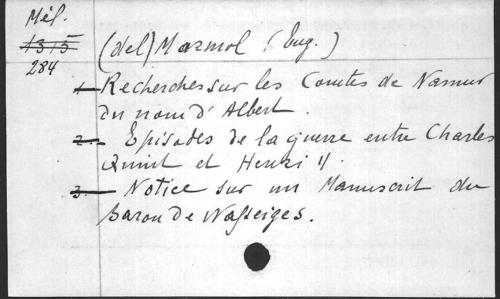 Mél.
1315
284
(del) Marmol (Eug.)
1 Recherches sur les Comtes de Namur
du nom d'Albert.
2. Episodes de la guerre entre Charles
Quint et Henri II.
3. Notice sur un Manuscrit du
baron de Wasseiges.